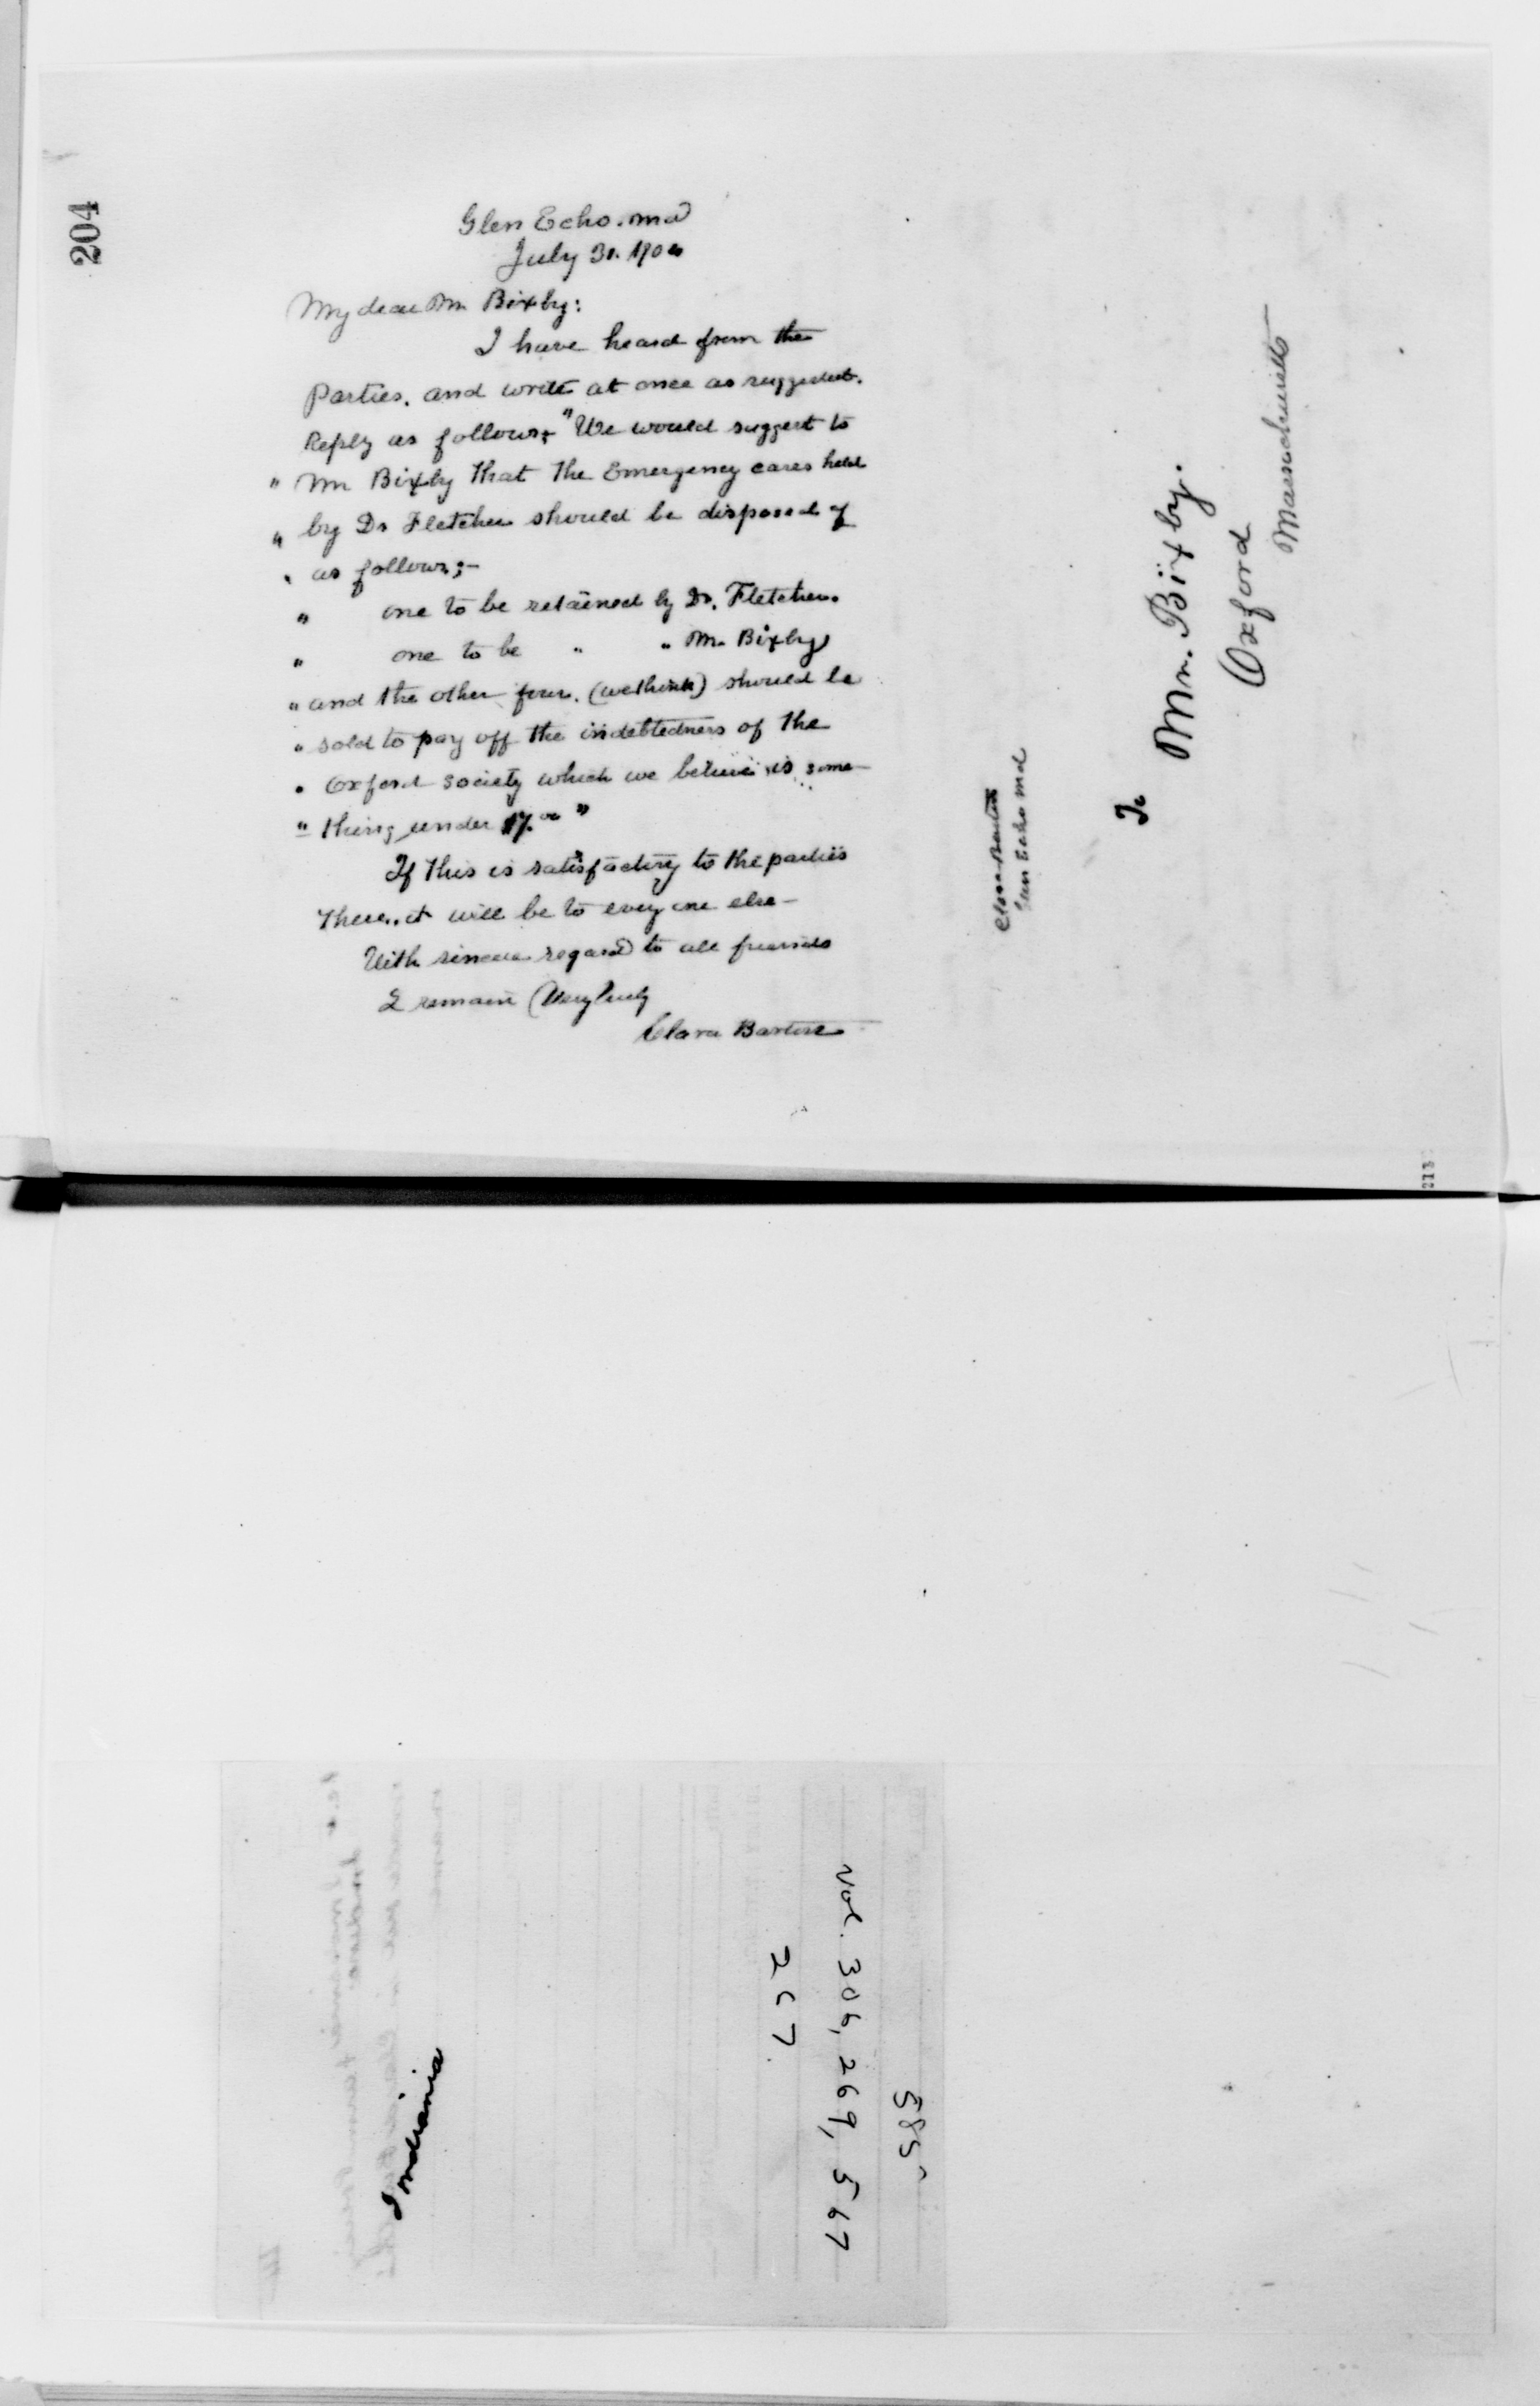 204
Glen Echo. Md
July 31. 190
My dear Mr Bixby:
I have heard from the
Parties. and write at once as suggested.
Reply as follows; "We would suggest to
" Mr Bixby that the Emergency cases held
" by Dr Fletcher should be disposed of
" as follows;-
" one to be retained by Dr. Fletcher.
" one to be " " Mr. Bixby
" and the other four. (we think) should be
" sold to pay off the indebtedness of the
" Oxford society which we believe is some-
" thing under $7.00 "
If this is satisfactory to the parties
there. it will be to every one else-
With sincere regard to all friends
I remain Very truly
Clara Barton
Clara Barton
Glen Echo Md
To
Mr. Bixby.
Oxford
Massachusetts
213
585
Vol. 306, 269, 567
267.
Indiania